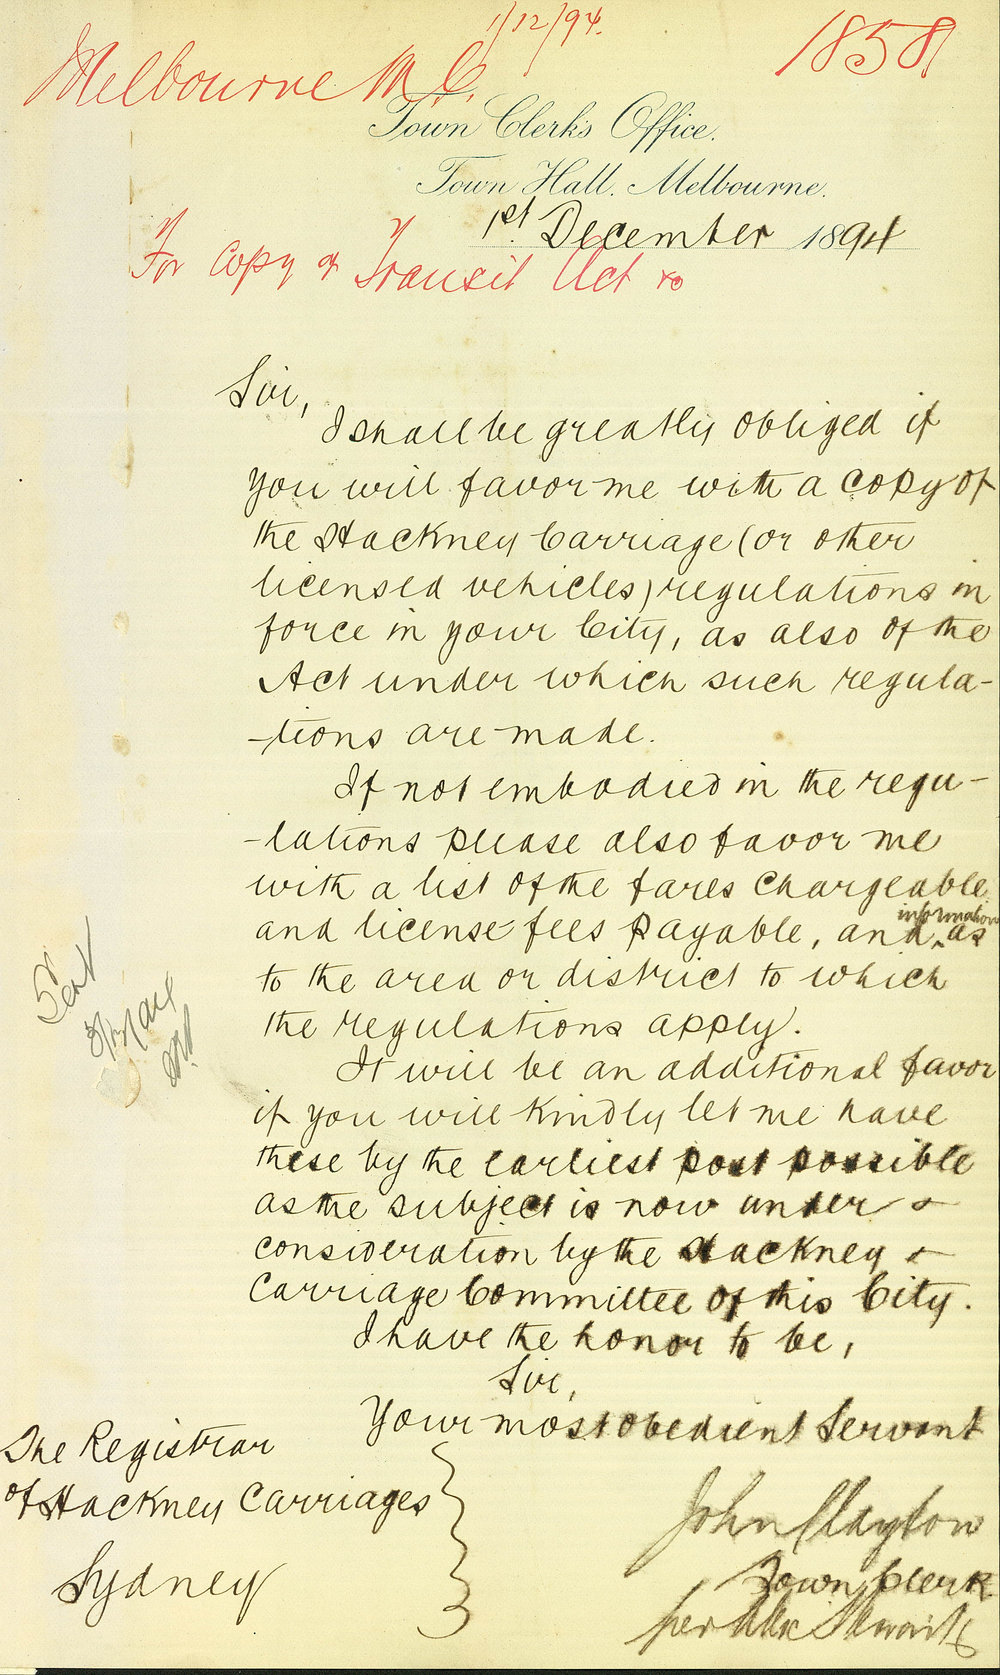 1/12/94.
Melbourne M. C.
1858
Town Clerk's Office.
Town Hall. Melbourne.
1st December 1894
For Copy of Transit Act &c
Sir,
I shall be greatly obliged if
you will favor me with a copy of
the Hackney Carriage (or other
licensed vehicles) regulations in
force in your City, as also of the
Act under which such regula-
-tions are made.
If not embodied in the regu-
-lations please also favor me
with a list of the fares chargeable
information
and license fees payable, and ^ as
to the area or district to which
the regulations apply.
It will be an additional favor
if you will kindly let me have
these by the earliest post possible
as the subject is now under
consideration by the Hackney
Carriage Committee of this City.
I have the honor to be,
Sir,
Your most obedient Servant
The Registrar
of Hackney Carriages
Sydney
John Clayton
Town Clerk
per
Sent